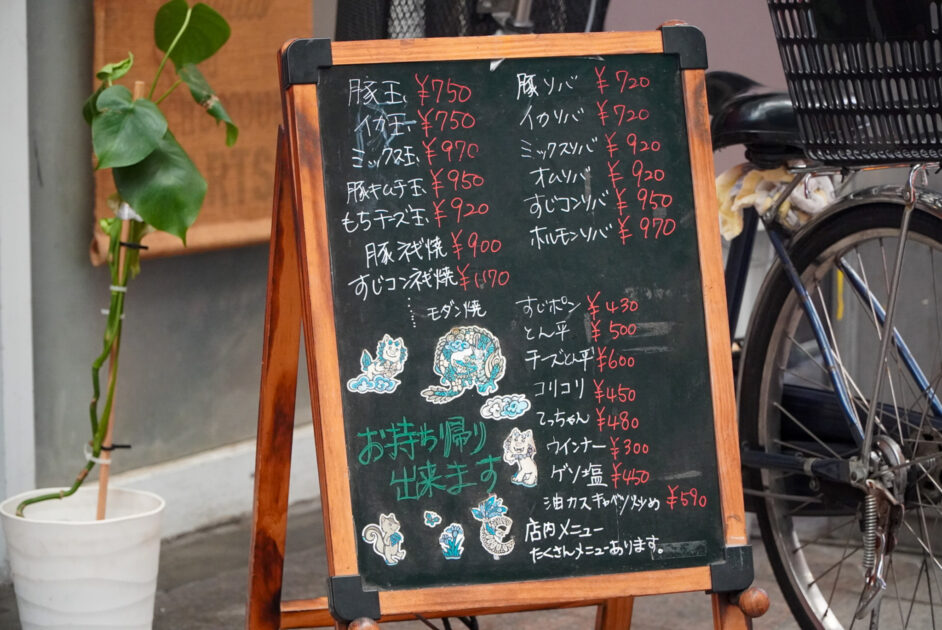 豚玉 ¥750
イカ玉 ¥750
ミックス玉 ¥970
豚キムチ玉 ¥950
もちチーズ玉 ¥920
豚ネギ焼 ¥900
すじコンネギ焼 ¥1,170
モダン焼
豚ソバ ¥720
イカソバ ¥720
ミックスソバ ¥920
オムソバ ¥920
すじコンソバ ¥950
ホルモンソバ ¥970
すじポン ¥430
とん平 ¥500
チーズとん平 ¥600
コリコリ ¥450
てっちゃん ¥480
ウインナー ¥300
ゲソ塩 ¥450
油カスキャベツ炒め ¥590
お持ち帰り
出来ます
店内メニュー
たくさんメニューあります。